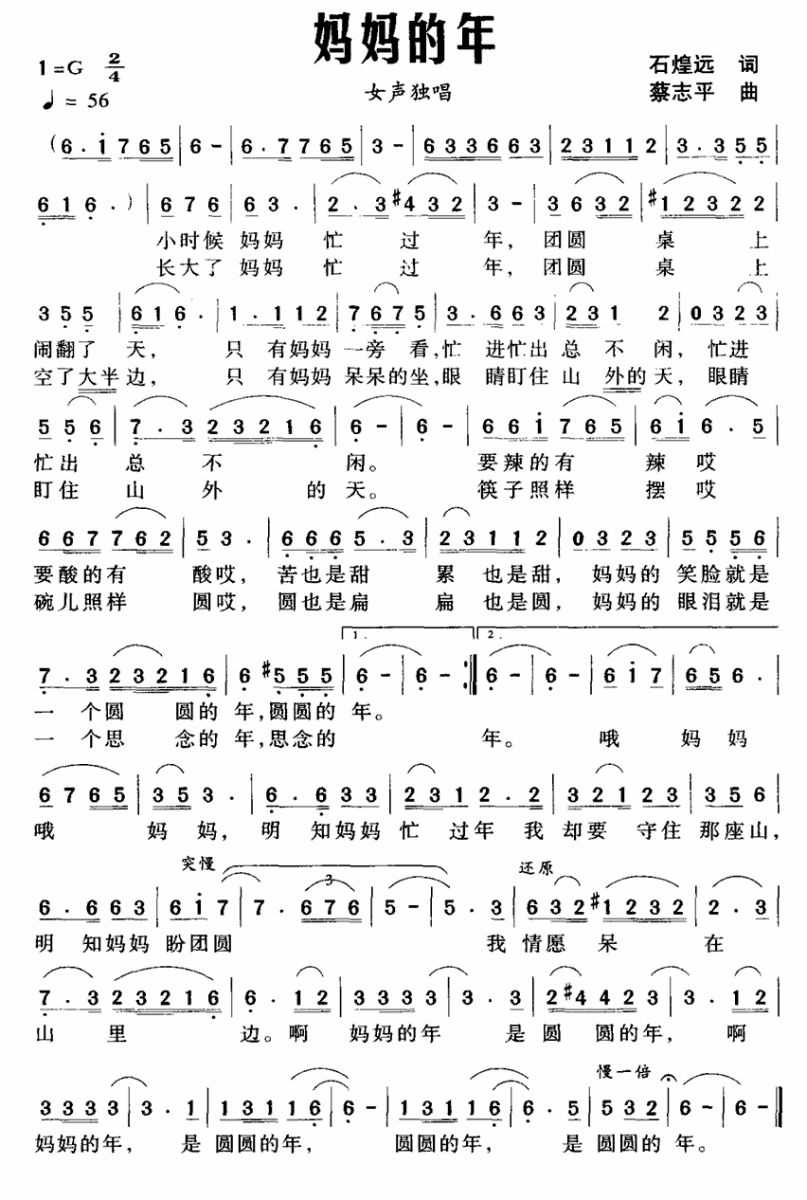 妈妈的年
1=G 2/4
♩= 56
女声独唱
石煌远 词
蔡志平 曲
(6. i 7 6 5 | 6 - | 6. 7 7 6 5 | 3 - | 6 3 3 6 6 3 | 2 3 1 1 2 | 3. 3 5 5 |
6 1 6 .) | 6 7 6 | 6 3 . | 2 . 3 #4 3 2 | 3 - | 3 6 3 2 | #1 2 3 2 2 |
小时候 妈妈 忙 过 年, 团圆 桌 上
长大了 妈妈 忙 过 年, 团圆 桌 上
3 5 5 | 6 1 6 . | 1 . 1 1 2 | 7 6 7 5 | 3 . 6 6 3 | 2 3 1 2 | 0 3 2 3 |
闹翻了 天, 只 有妈妈 一旁 看,忙 进忙出 总 不 闲, 忙进
空了大半边, 只 有妈妈 呆呆的坐,眼 睛盯住 山 外的天, 眼睛
5 5 6 | 7 . 3 2 3 2 1 6 | 6 - | 6 - | 6 6 i 7 6 5 | 6 i 6 . 5 |
忙出 总 不 闲。 要辣的有 辣 哎
盯住 山 外 的 天。 筷子照样 摆 哎
6 6 7 7 6 2 | 5 3 . | 6 6 6 5 . 3 | 2 3 1 1 2 | 0 3 2 3 | 5 5 5 6 |
要酸的有 酸哎, 苦也是甜 累 也是甜, 妈妈的 笑脸就是
碗儿照样 圆哎, 圆也是扁 扁 也是圆, 妈妈的 眼泪就是
1. 2.
7 . 3 2 3 2 1 6 | 6 #5 5 5 | 6 - | 6 - :| 6 - | 6 - | 6 i 7 | 6 5 6 . |
一 个圆 圆的 年,圆圆的 年。
一 个思 念的 年,思念的 年。 哦 妈妈
6 7 6 5 | 3 5 3 . | 6 . 6 3 3 | 2 3 1 2 . 2 | 3 2 1 2 3 | 3 5 6 |
哦 妈 妈, 明 知妈妈 忙 过年 我 却要 守住 那座山,
突慢 还原
3
6 . 6 6 3 | 6 i 7 | 7 . 6 7 6 | 5 - | 5 . 3 | 6 3 2 #1 2 3 2 | 2 . 3 |
明 知妈妈 盼团圆 我 情愿 呆 在
7 . 3 2 3 2 1 6 | 6 . 1 2 | 3 3 3 3 | 3 . 3 | 2 #4 4 2 3 | 3 . 1 2 |
山 里 边。啊 妈妈的年 是 圆 圆的年, 啊
慢一倍
3 3 3 3 | 3 . 1 | 1 3 1 1 6 | 6 - | 1 3 1 1 6 | 6 . 5 | 5 3 2 | 6 - | 6 - ||
妈妈的年, 是 圆圆的年, 圆圆的年, 是 圆圆的 年。